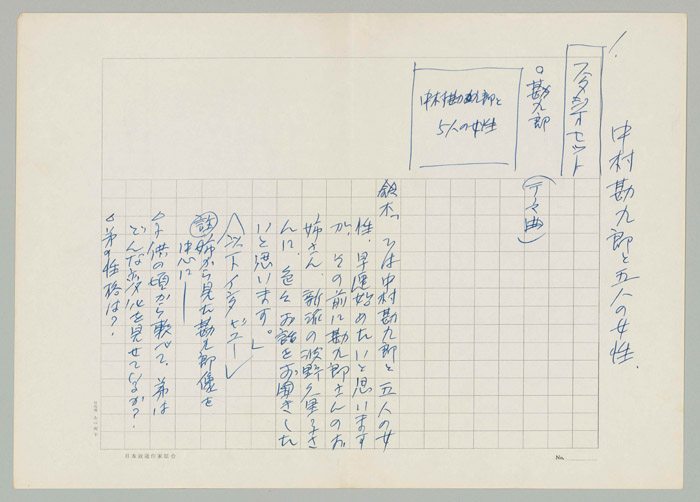 中村勘九郎と五人の女性.
スタジオセット
○勘九郎
中村勘九郎と
5人の女性
(テーマ曲)
鈴木「では中村勘九郎と五人の女
性、早速始めたいと思います
が、その前に勘九郎さんのお
姉さん、新派の波野久里子さ
んに、色々お話をお聞きした
いと思います。」
〈以下インタビュー〉
(註)姉から見た勘九郎像を
中心に――
◊子供の頃から較べて、弟は
どんな変化を見せているか?
◊弟の性格は?
日本放送作家組合
No.